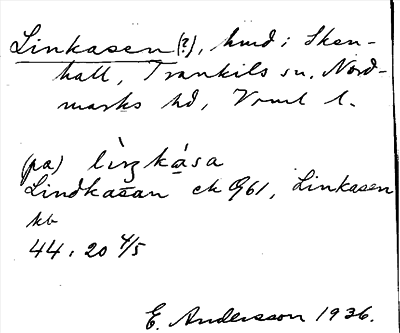 Linkasen (?), hmd i Sken-
hall, Trankils sn, Nord-
marks hd, Vrml l.
(pa) lìŋkása
Lindkasan ek Ö61, Linkasen
kb
44.20 4/5
E. Andersson 1936.